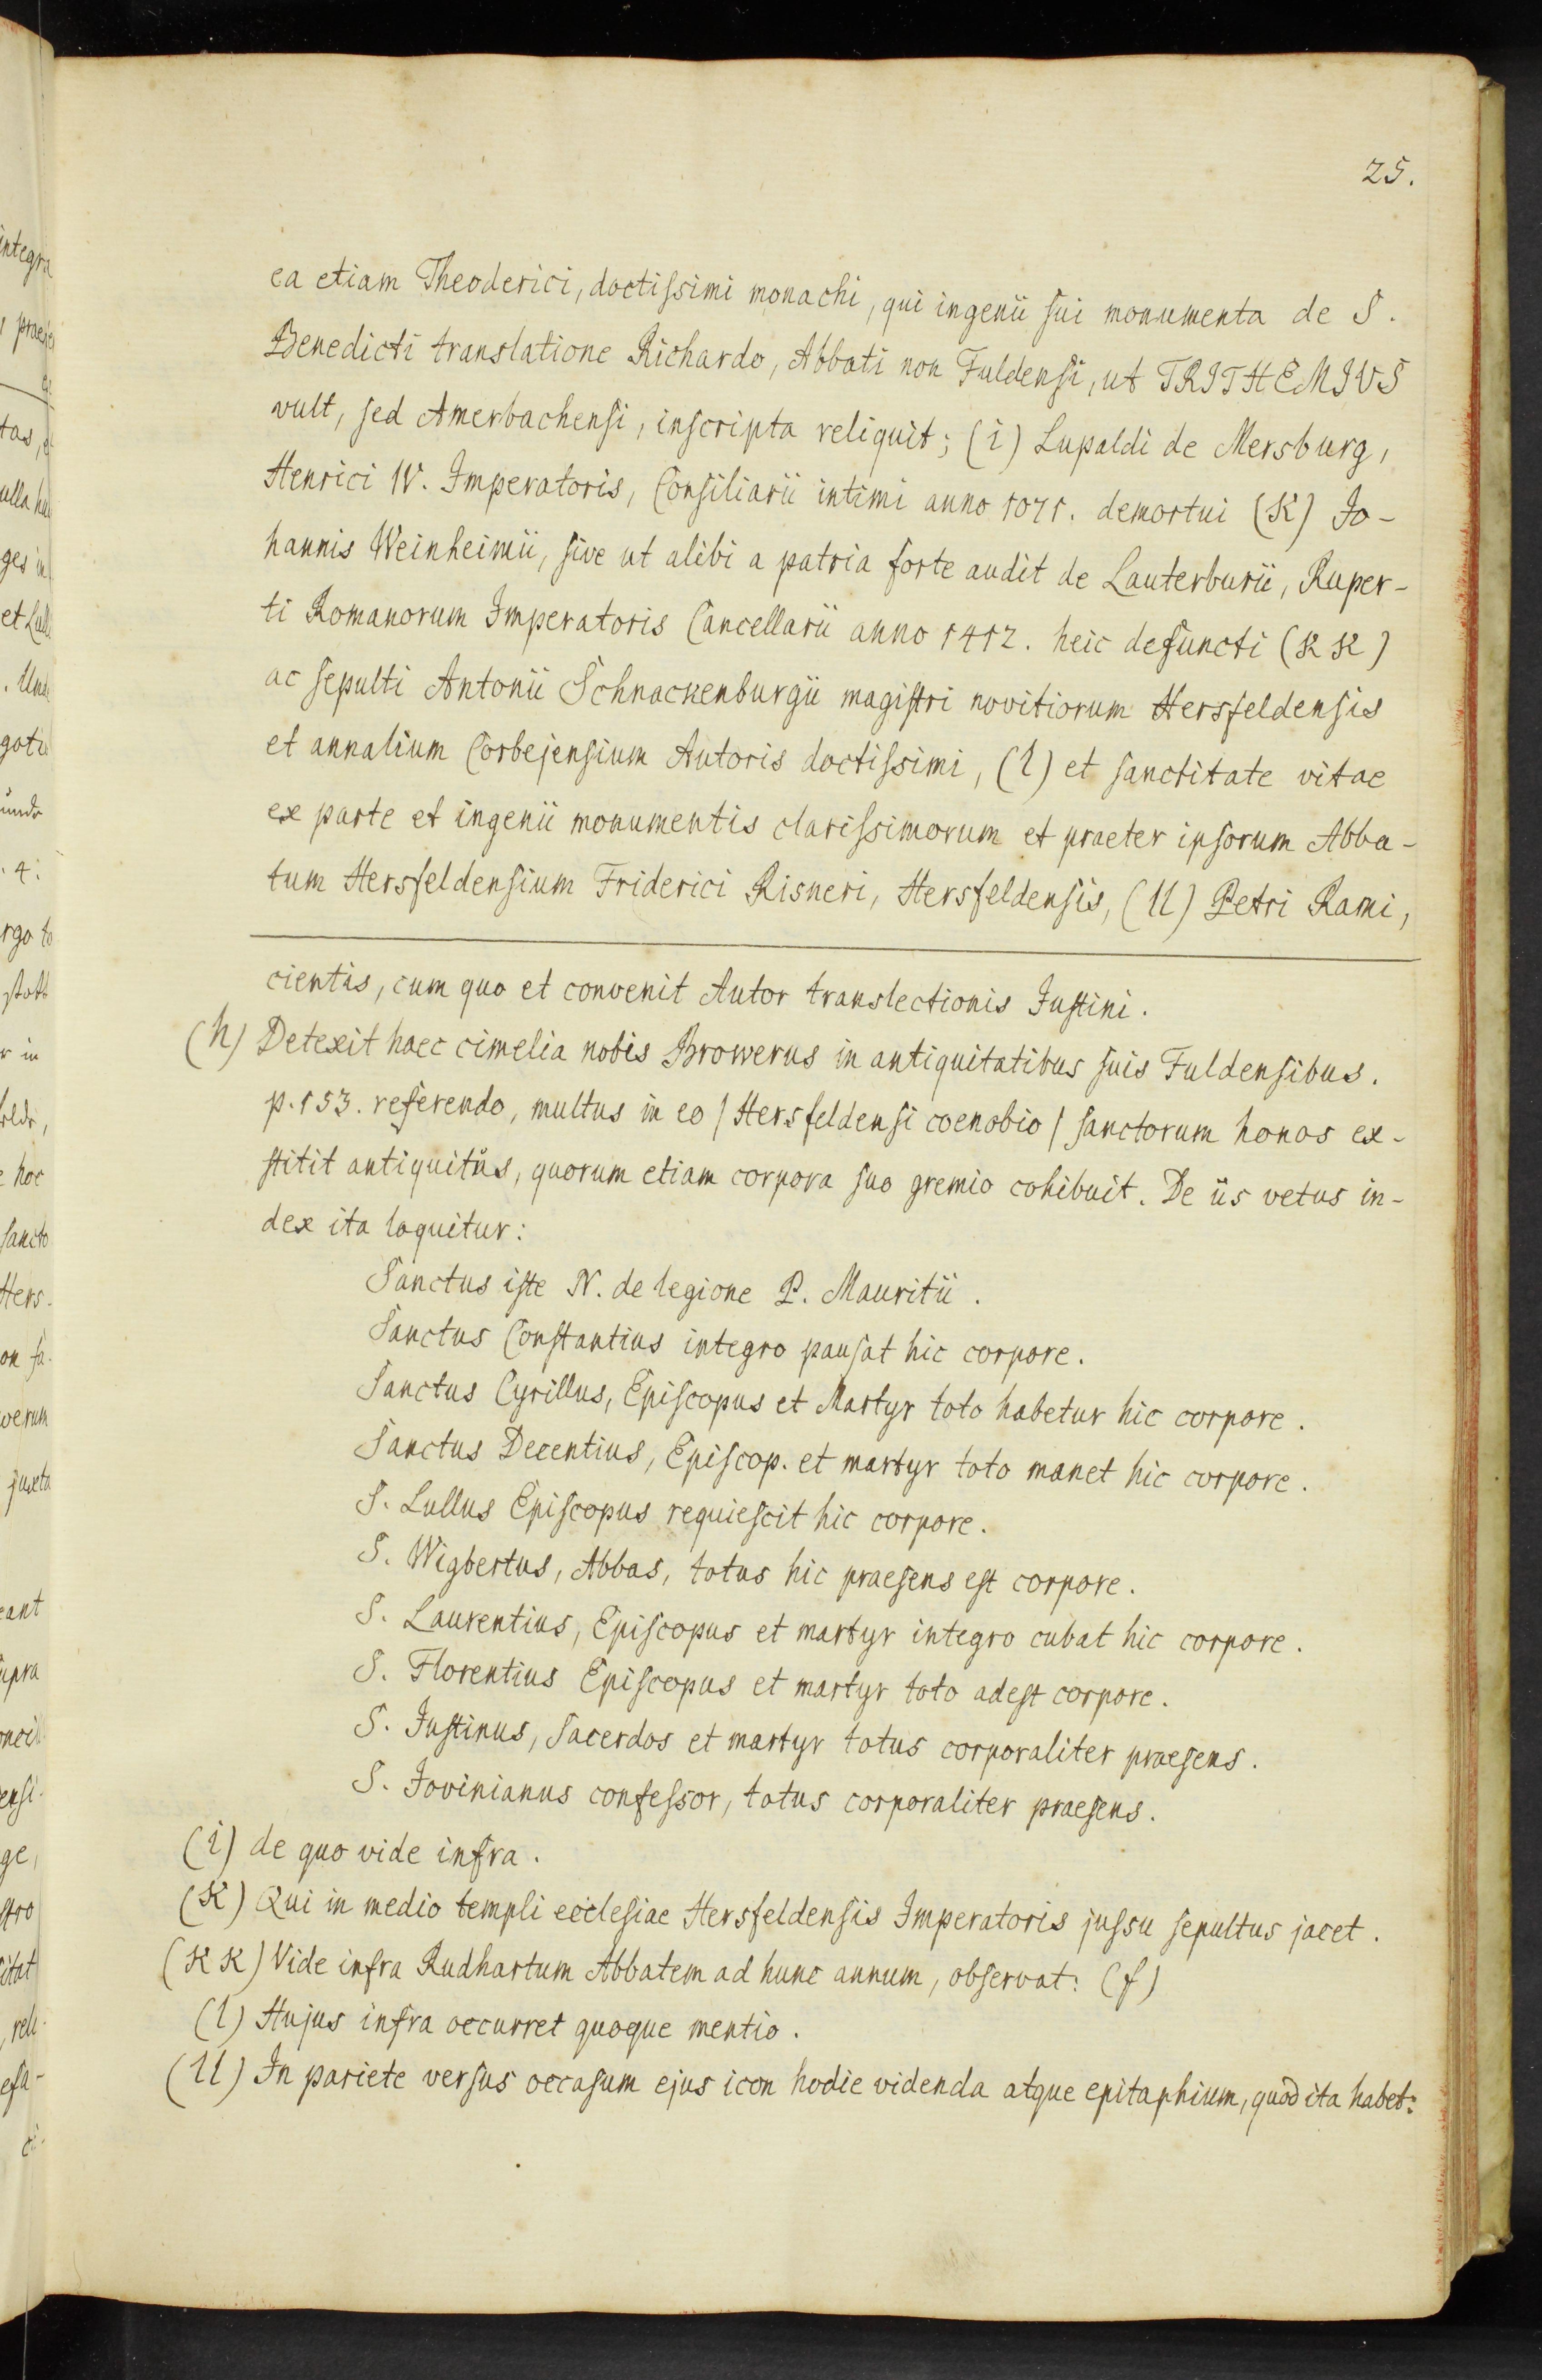 25.
ea etiam Theoderici, doctissimi monachi, qui ingenii sui monumenta de S.
Benedicti translatione Richardo, Abbati non Fuldensi, ut TRITHEMIVS
vult, sed Amerbachensi, inscripta reliquit; (i) Lupaldi de Mersburg,
Henrici IV. Imperatoris, Consiliarii intimi anno 1071. demortui (K) Jo-
hannis Weinheimii, sive ut alibi a patria forte audit de Lauterburii, Ruper-
ti Romanorum Imperatoris Cancellarii anno 1412. heic defuncti (KK)
ac sepulti Antonii Schnackenburgii magistri novitiorum Hersfeldensis
et annalium Corbejensium Autoris doctissimi, (l) et sanctitate vitae
ex parte et ingenii monumentis clarissimorum et praeter ipsorum Abba-
tum Hersfeldensium Friderici Risneri, Hersfeldensis, (ll) Petri Rami,
cientis, cum quo et convenit Autor translectionis Justini.
(h) Detexit haec cimelia nobis Browerus in antiquitatibus suis Fuldensibus.
p. 153. referendo, multus in eo / Hersfeldensi coenobio / sanctorum honos ex-
stitit antiquitùs, quorum etiam corpora suo gremio cohibuit. De iis vetus in-
dex ita loquitur:
Sanctus iste N. de legione P. Mauritii.
Sanctus Constantius integro pausat hic corpore.
Sanctus Cyrillus, Episcopus et Martyr toto habetur hic corpore.
Sanctus Decentius, Episcop. et martyr toto manet hic corpore.
S. Lullus Episcopus requiescit hic corpore.
S. Wigbertus, Abbas, totus hic praesens est corpore.
S. Laurentius, Episcopus et martyr integro cubat hic corpore.
S. Florentius Episcopus et martyr toto adest corpore.
S. Justinus, Sacerdos et martyr totus corporaliter praesens.
S. Jovinianus confessor, totus corporaliter praesens.
(i) de quo vide infra.
(K) Qui in medio templi ecclesiae Hersfeldensis Imperatoris jussu sepultus jacet.
(KK) Vide infra Rudhartum Abbatem ad hunc annum, observat: (f)
(l) Hujus infra occurret quoque mentio.
(ll) In pariete versus occasum ejus icon hodie videnda atque epitaphium, quod ita habet: